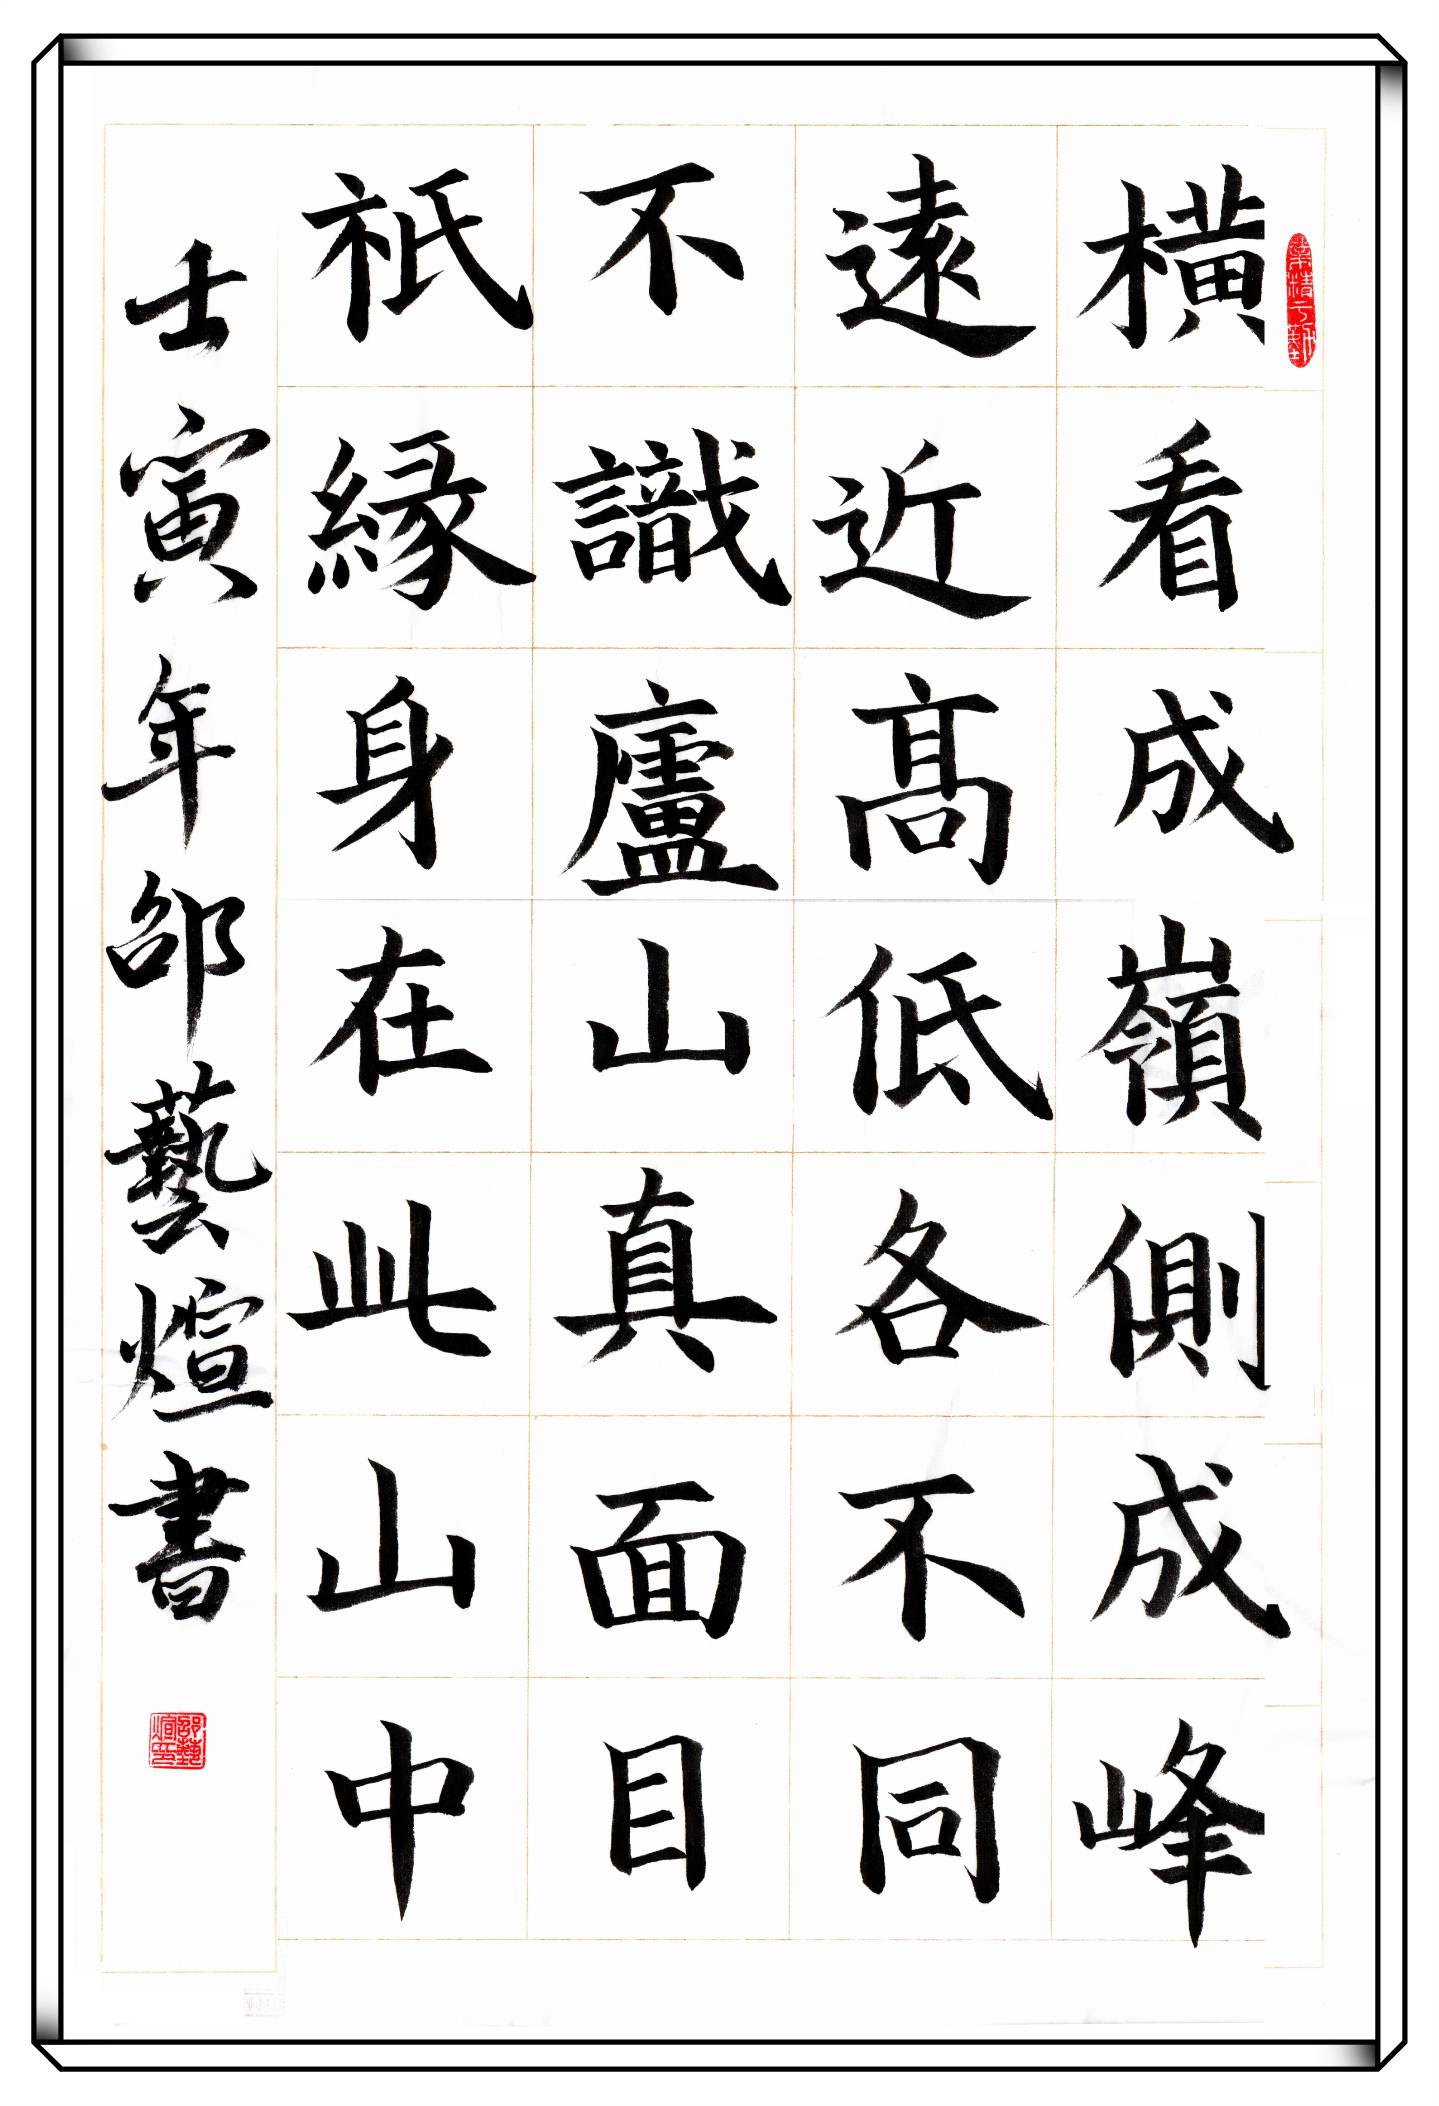 横看成嶺側成峰
遠近髙低各不同
不識廬山真面目
祇緣身在此山中
壬寅年邵藝煊書
邵藝煊印